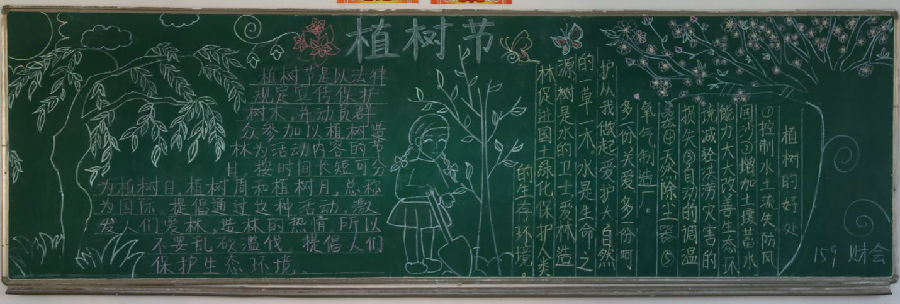 植树节
植树节是以法律
规定宣传保护
树木,并动员群
众参加以植树造
林为活动内容的节
日,按时间长短可分
为植树日,植树周和植树月,总称
为国际,提倡通过这种活动,激
发人们爱林,造林的热情,所以
不要乱砍滥伐,提倡人们
保护生态环境。
护从我做起爱护大自然
的一草一木水是生命之
源树是水的卫士爱林造
林促进国土绿化保护人类
的生存环境。
植树的好处
①控制水土流失防风
固沙②增加土壤蓄水
能力大大改善生态环
境减轻洪涝灾害的
损失③自动的调温
器④天然除尘器⑤
氧气制造厂。
多份关爱多份呵
159 财会